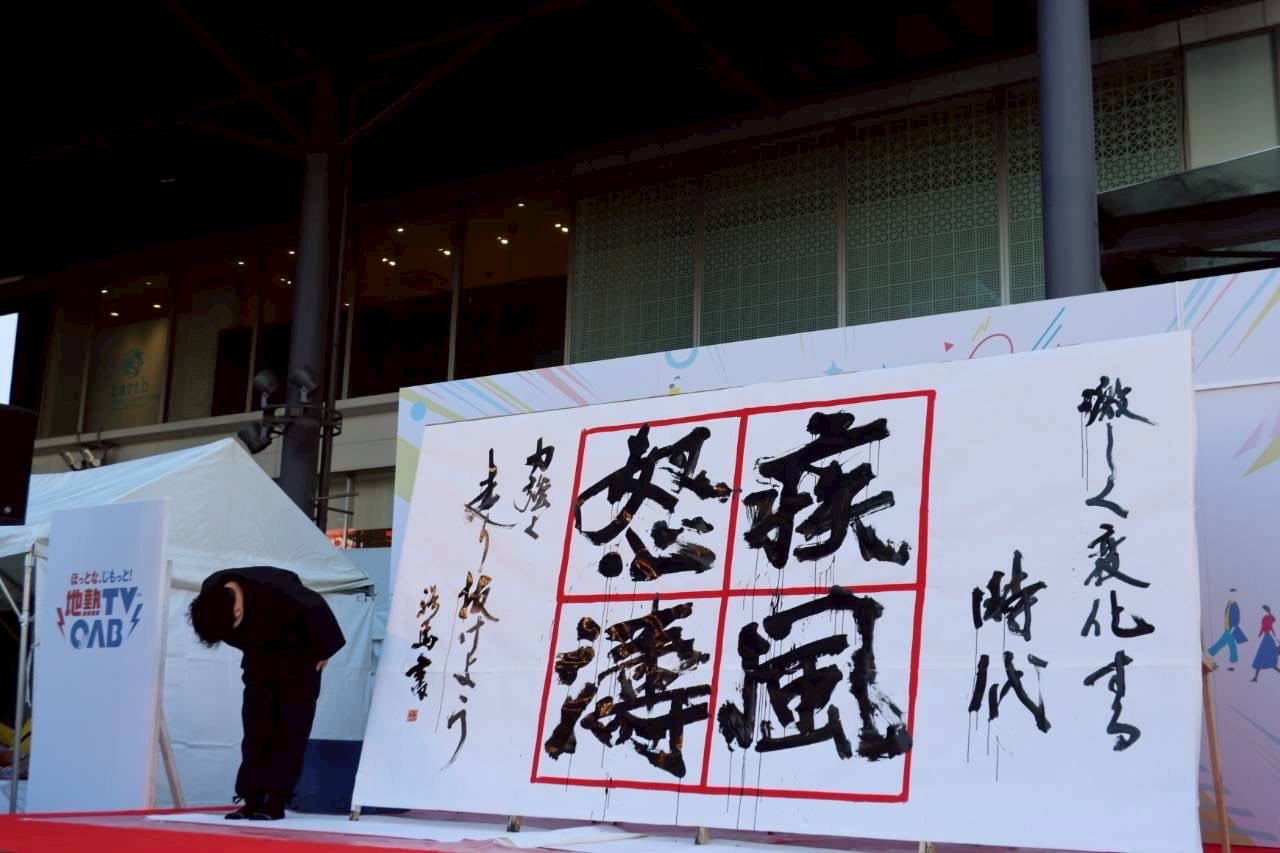 激しく変化する
時代
疾風
怒濤
力強く
走り抜けよう
ほっとな、じもっと!
地熱TV
OAB
earth